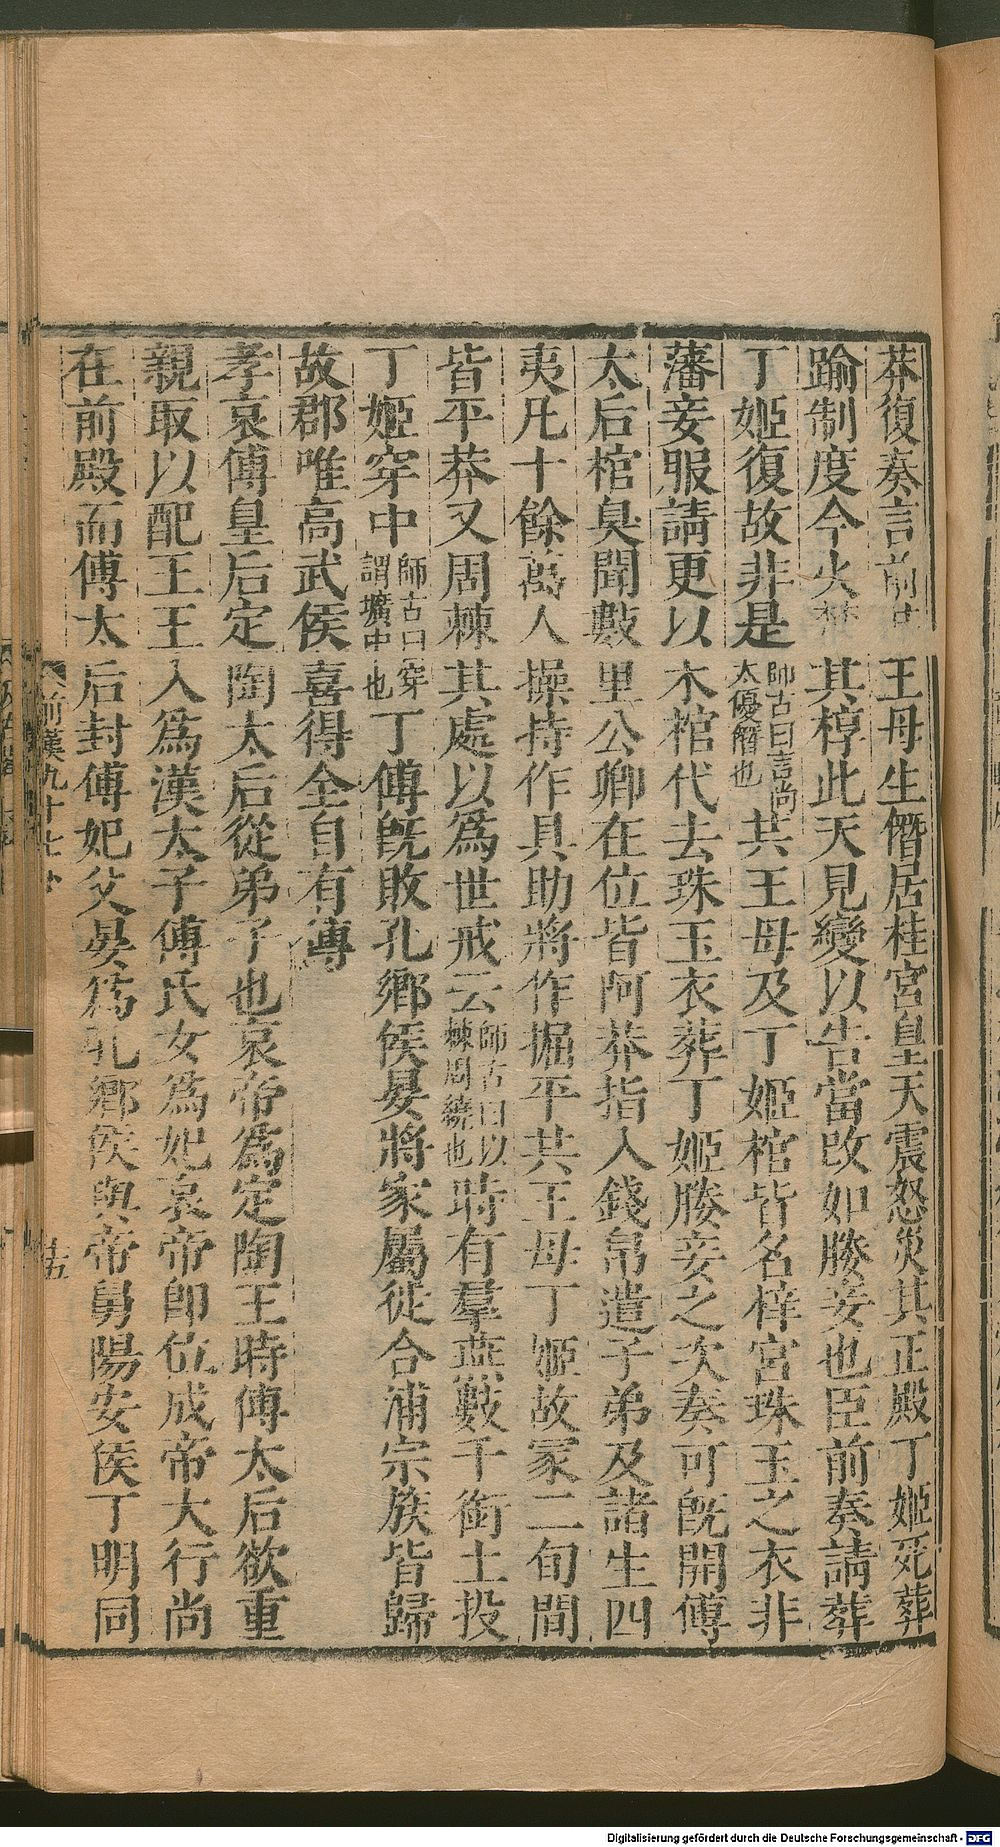 莽復奏言前共王母生僭居桂宮皇天震怒災其正殿丁姬死葬
踰制度今火焚其椁此天見變以告當改如媵妾也臣前奏請葬
丁姬復故非是師古曰言尚太優僭也共王母及丁姬棺皆名梓宮珠玉之衣非
藩妾服請更以木棺代去珠玉衣葬丁姬媵妾之次奏可旣開傅
太后棺臭聞數里公卿在位皆阿莽指入錢帛遣子弟及諸生四
夷凡十餘萬人操持作具助將作掘平共王母丁姬故冢二旬間
皆平莽又周棘其處以爲世戒云師古曰以棘周繞也時有羣燕數千銜土投
丁姬穿中師古曰穿謂壙中也丁傅旣敗孔鄉侯晏將家屬徙合浦宗族皆歸
故郡唯高武侯喜得全自有傳
孝哀傅皇后定陶太后從弟子也哀帝爲定陶王時傅太后欲重
親取以配王王入爲漢太子傅氏女爲妃哀帝卽位成帝大行尚
在前殿而傅太后封傅妃父晏爲孔鄉侯與帝舅陽安侯丁明同
前漢九十七下
五
Digitalisierung gefördert durch die Deutsche Forschungsgemeinschaft - DFG